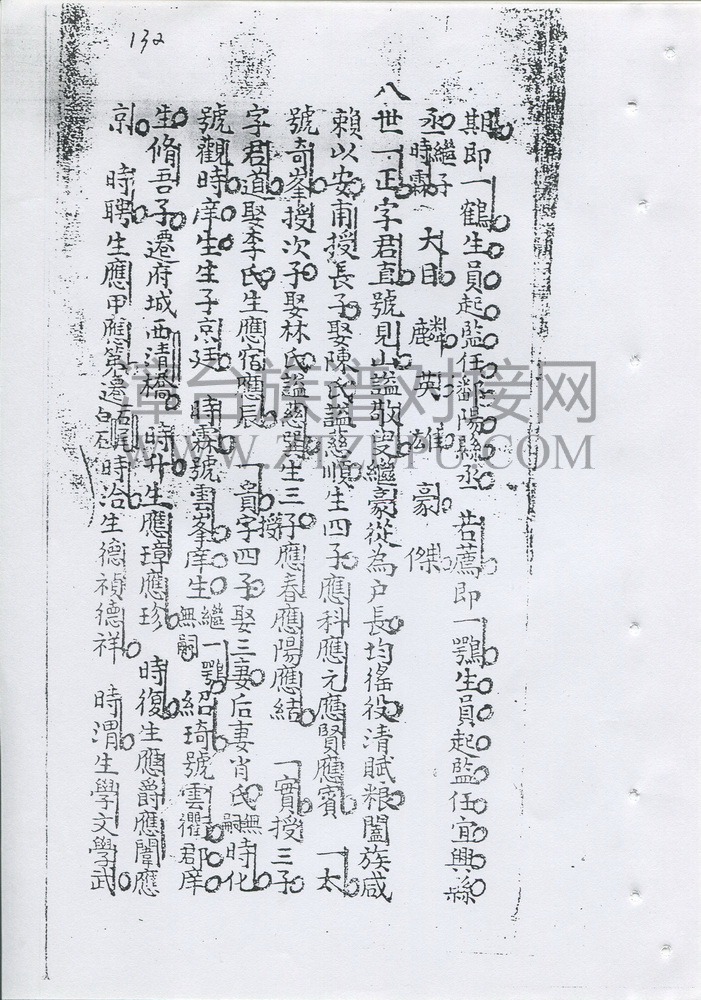 132
期即一鶴生員起監任鄱陽縣丞 若薦即一鶚生員起監任宜興縣
丞繼子時霖 大目 麟 英 雄 豪 傑
八世一正字君直號見山謚敬叟繼豪從為户長均徭役清賦粮闔族咸
賴以安甫授長子娶陳氏謚慈順生四子應科應元應賢應賓 一太
號奇峯授次子娶林氏謚慈巽生三子應春應陽應結 一實授三子
字君道娶李氏生應宿應辰 一貴字四子娶三妻后妻肖氏無嗣時化
授
號觀時庠生生子京廷 時霖號雲峯庠生無嗣繼一鶚 紹琦號雲衢郡庠
生脩吾子遷府城西清橋 時升生應璋應珍 時復生應爵應闈應
京 時聘生應甲應第遷白石尾 時治生德禎德祥 時渭生學文學武
漳台族谱对接网
WWW.ZTZUPU.COM